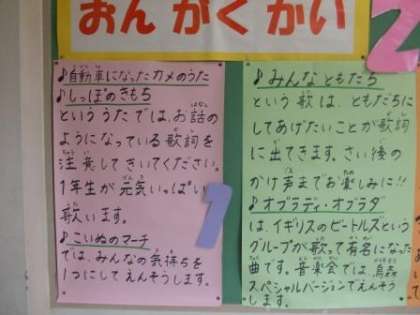 おんがくかい
2
♪自動車になったカメのうた
♪しっぽのきもち
といううたでは、お話の
ようになっている歌詞を
注意してきいてください。
1年生が元気いっぱい
歌います。
♪こいぬのマーチ
では、みんなの気持ちを
1つにしてえんそうします。
1
♪みんなともだち
という歌は、ともだちに
してあげたいことが歌詞
に出てきます。さい後の
かけ声までお楽しみに!!
♪オブラディ・オブラダ
は、イギリスのビートルズという
グループが歌って有名になった
曲です。音楽会では、烏森
スペシャルバージョンでえんそう
します。